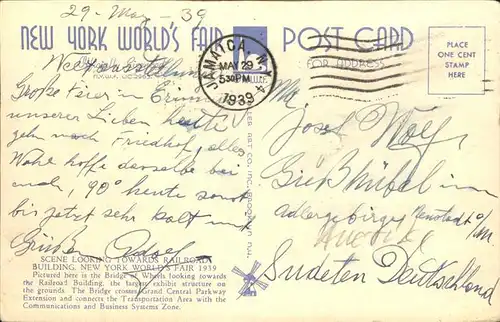 29-May-39
NEW YORK WORLD'S FAIR
POST CARD
JAMAICA, N.Y.
MAY 29
530PM
1939
4
FOR ADDRESS
PLACE
ONE CENT
STAMP
HERE
Weltausstellung
Große Feier in
unserer Lieben heute
geh nach Friedhof, alles
Wohl hoffe derselbe bei
euch, 90° heute sonst
bis jetzt sehr kalt und
Grüße
Josef Wolf
Gießhübel im
Adlergebirge Neustadt a/M.
Sudeten Deutschland
SCENE LOOKING TOWARDS RAILROAD
BUILDING, NEW YORK WORLD'S FAIR 1939
Pictured here is the Bridge of Wheels looking towards
the Railroad Building, the largest exhibit structure on
the grounds. The Bridge crosses Grand Central Parkway
Extension and connects the Transportation Area with the
Communications and Business Systems Zone.